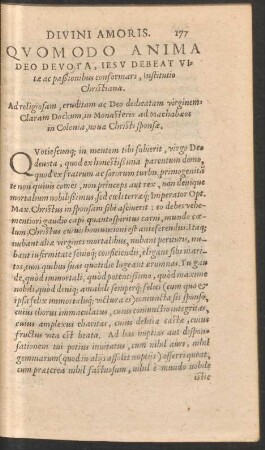 DIVINI AMORIS. 177
QVOMODO ANIMA
DEO DEVOTA, IESV DEBEAT VI-
tæ ac paßionibus conformari, institutio
Christiana.
Ad religiosam, eruditam ac Deo dedicatam virginem
Claram Dockum, in Monasterio ad Machabæos
in Colonia, noua Christi sponsa.
QVotiescunq; in mentem tibi subierit, virgo Deo
deuota, quod ex honestißimis parentum domo,
quod ex fratrum ac sororum turba, primogenita
te non quiuis comes, non princeps aut rex, non deniq́ue
mortalium nobilißimus, sed cœli terræq; Imperator Opt.
Max. Christus in sponsam sibi asciuerit: eo debes vehe-
mentiori gaudio capi quanto spiritus carni, mundo cæ-
lum, Christus cuiuis homuncioni est anteferendus. Itaq;
nubant aliæ virgines mortalibus, nubant perituris, nu-
bant infirmitate senioq; conficiendis, eligant sibi mari-
tos, cum quibus suas quotidie lugeant ærumnas. Tu gau
de, quòd immortali, quòd potentißimo, quòd maximè
nobili, quòd deniq; amabili semperq́; felici (cum quo e-
ipsa felix immortaliq́; victura es) coniuncta sis sponso,
cuius chorus immaculatus, cuius coniunctio integritas,
cuius amplexus charitas, cuius delitiæ castæ, cuius
fructus vita est beata. Ad has nuptias aut dispon-
sationem tui potius inuitatus, cum nihil auri, nihil
gemmarum (quod in alijs assolet nuptijs) offerri queat,
cum præterea nihil sanctuosum, nihil è mundo nobile